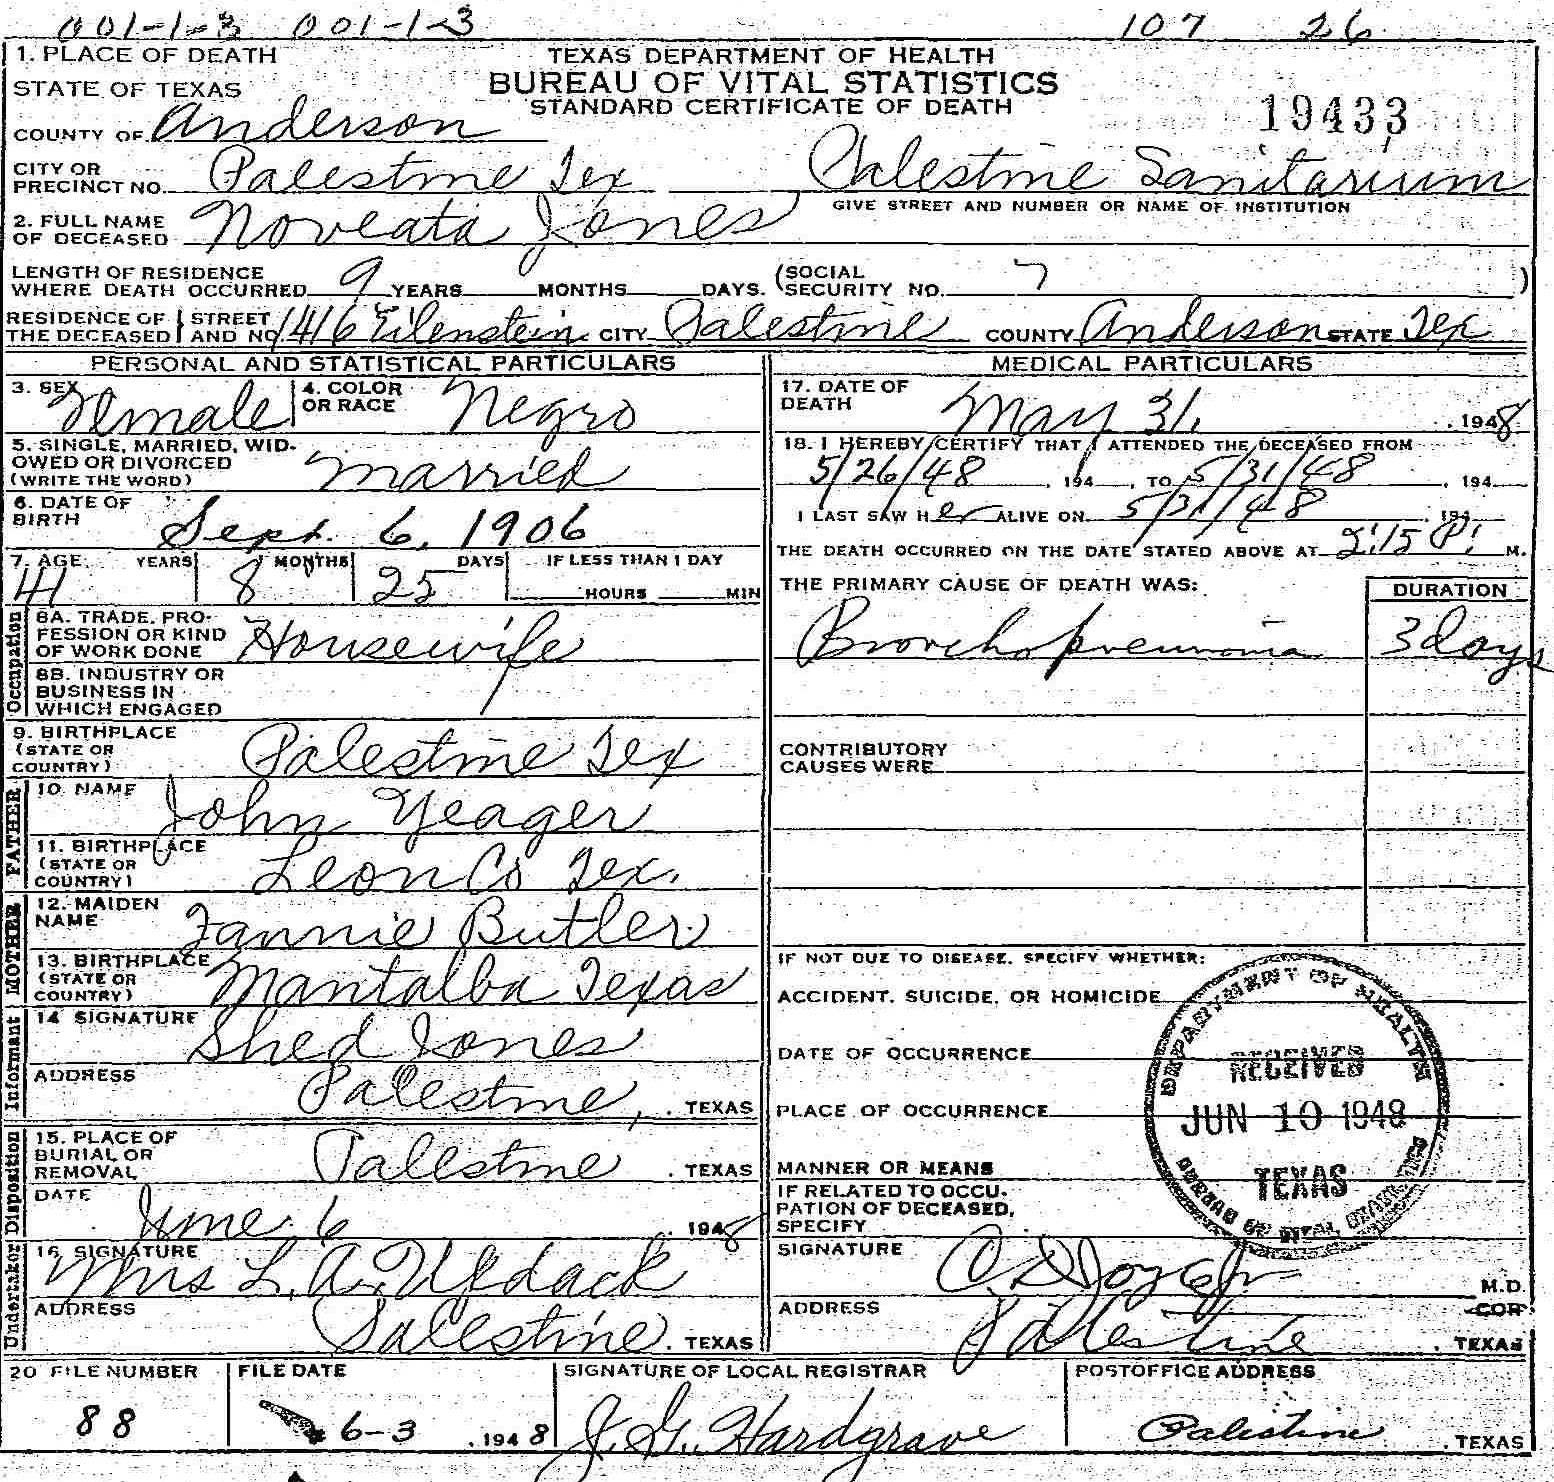 001-1-3 001-1-3 107 26
1. PLACE OF DEATH
STATE OF TEXAS
TEXAS DEPARTMENT OF HEALTH
BUREAU OF VITAL STATISTICS
STANDARD CERTIFICATE OF DEATH
19433
COUNTY OF Anderson
CITY OR PRECINCT NO. Palestine Tex Palestine Sanitarium
GIVE STREET AND NUMBER OR NAME OF INSTITUTION
2. FULL NAME OF DECEASED Noveata Jones
LENGTH OF RESIDENCE WHERE DEATH OCCURRED 9 YEARS MONTHS DAYS. (SOCIAL SECURITY NO. )
RESIDENCE OF THE DECEASED STREET AND NO. 1416 Eilenstein CITY Palestine COUNTY Anderson STATE Tex
PERSONAL AND STATISTICAL PARTICULARS
3. SEX Female 4. COLOR OR RACE Negro
5. SINGLE, MARRIED, WIDOWED OR DIVORCED (WRITE THE WORD) Married
6. DATE OF BIRTH Sept. 6, 1906
7. AGE YEARS MONTHS DAYS IF LESS THAN 1 DAY
41 8 25 HOURS MIN
Occupation
8A. TRADE, PROFESSION OR KIND OF WORK DONE Housewife
8B. INDUSTRY OR BUSINESS IN WHICH ENGAGED
9. BIRTHPLACE (STATE OR COUNTRY) Palestine Tex
FATHER
10. NAME John Yeager
11. BIRTHPLACE (STATE OR COUNTRY) Leon Co Tex.
MOTHER
12. MAIDEN NAME Fannie Butler
13. BIRTHPLACE (STATE OR COUNTRY) Mantalba Texas
Informant
14 SIGNATURE Shed Jones
ADDRESS Palestine, TEXAS
Disposition
15. PLACE OF BURIAL OR REMOVAL Palestine . TEXAS
DATE June 6 . 1948
Undertaker
16 SIGNATURE Mrs L. A.
ADDRESS Palestine. TEXAS
MEDICAL PARTICULARS
17. DATE OF DEATH May 31, 1948
18. I HEREBY CERTIFY THAT I ATTENDED THE DECEASED FROM
5/26/48 . 194 , TO 5/31/48 . 194
I LAST SAW H er ALIVE ON 5/31/48 . 194
THE DEATH OCCURRED ON THE DATE STATED ABOVE AT 2:15 P. M.
THE PRIMARY CAUSE OF DEATH WAS: DURATION
Bronchopneumonia 3 days
CONTRIBUTORY CAUSES WERE
IF NOT DUE TO DISEASE, SPECIFY WHETHER:
ACCIDENT, SUICIDE, OR HOMICIDE
DATE OF OCCURRENCE
PLACE OF OCCURRENCE
MANNER OR MEANS
IF RELATED TO OCCUPATION OF DECEASED, SPECIFY
DEPARTMENT OF HEALTH
RECEIVED
JUN 10 1948
TEXAS
BUREAU OF VITAL STATISTICS
SIGNATURE M.D.
COR
ADDRESS Palestine . TEXAS
20 FILE NUMBER FILE DATE SIGNATURE OF LOCAL REGISTRAR POSTOFFICE ADDRESS
88 6-3 . 1948 J. G. Hardgrave Palestine . TEXAS